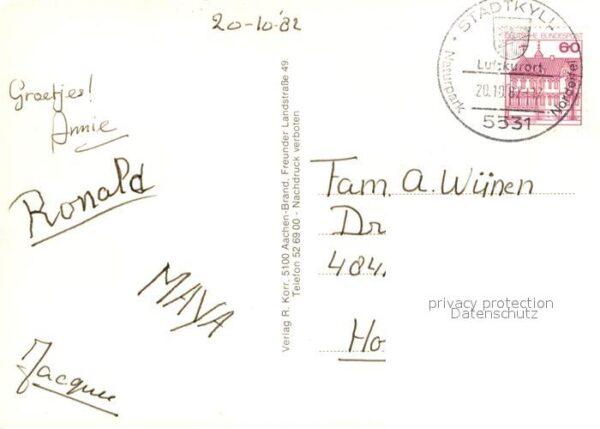 20-10-'82
Groetjes!
Annie
Ronald
MAYA
Jacques
Verlag R. Korr, 5100 Aachen-Brand, Freunder Landstraße 49
Telefon 52 69 00 - Nachdruck verboten
STADTKYLL
DEUTSCHE BUNDESPOST
60
Luftkurort
20.10.82-17
Naturpark
Nordeifel
5531
Fam. A. Wijnen
Dr
484
Ho
privacy protection
Datenschutz